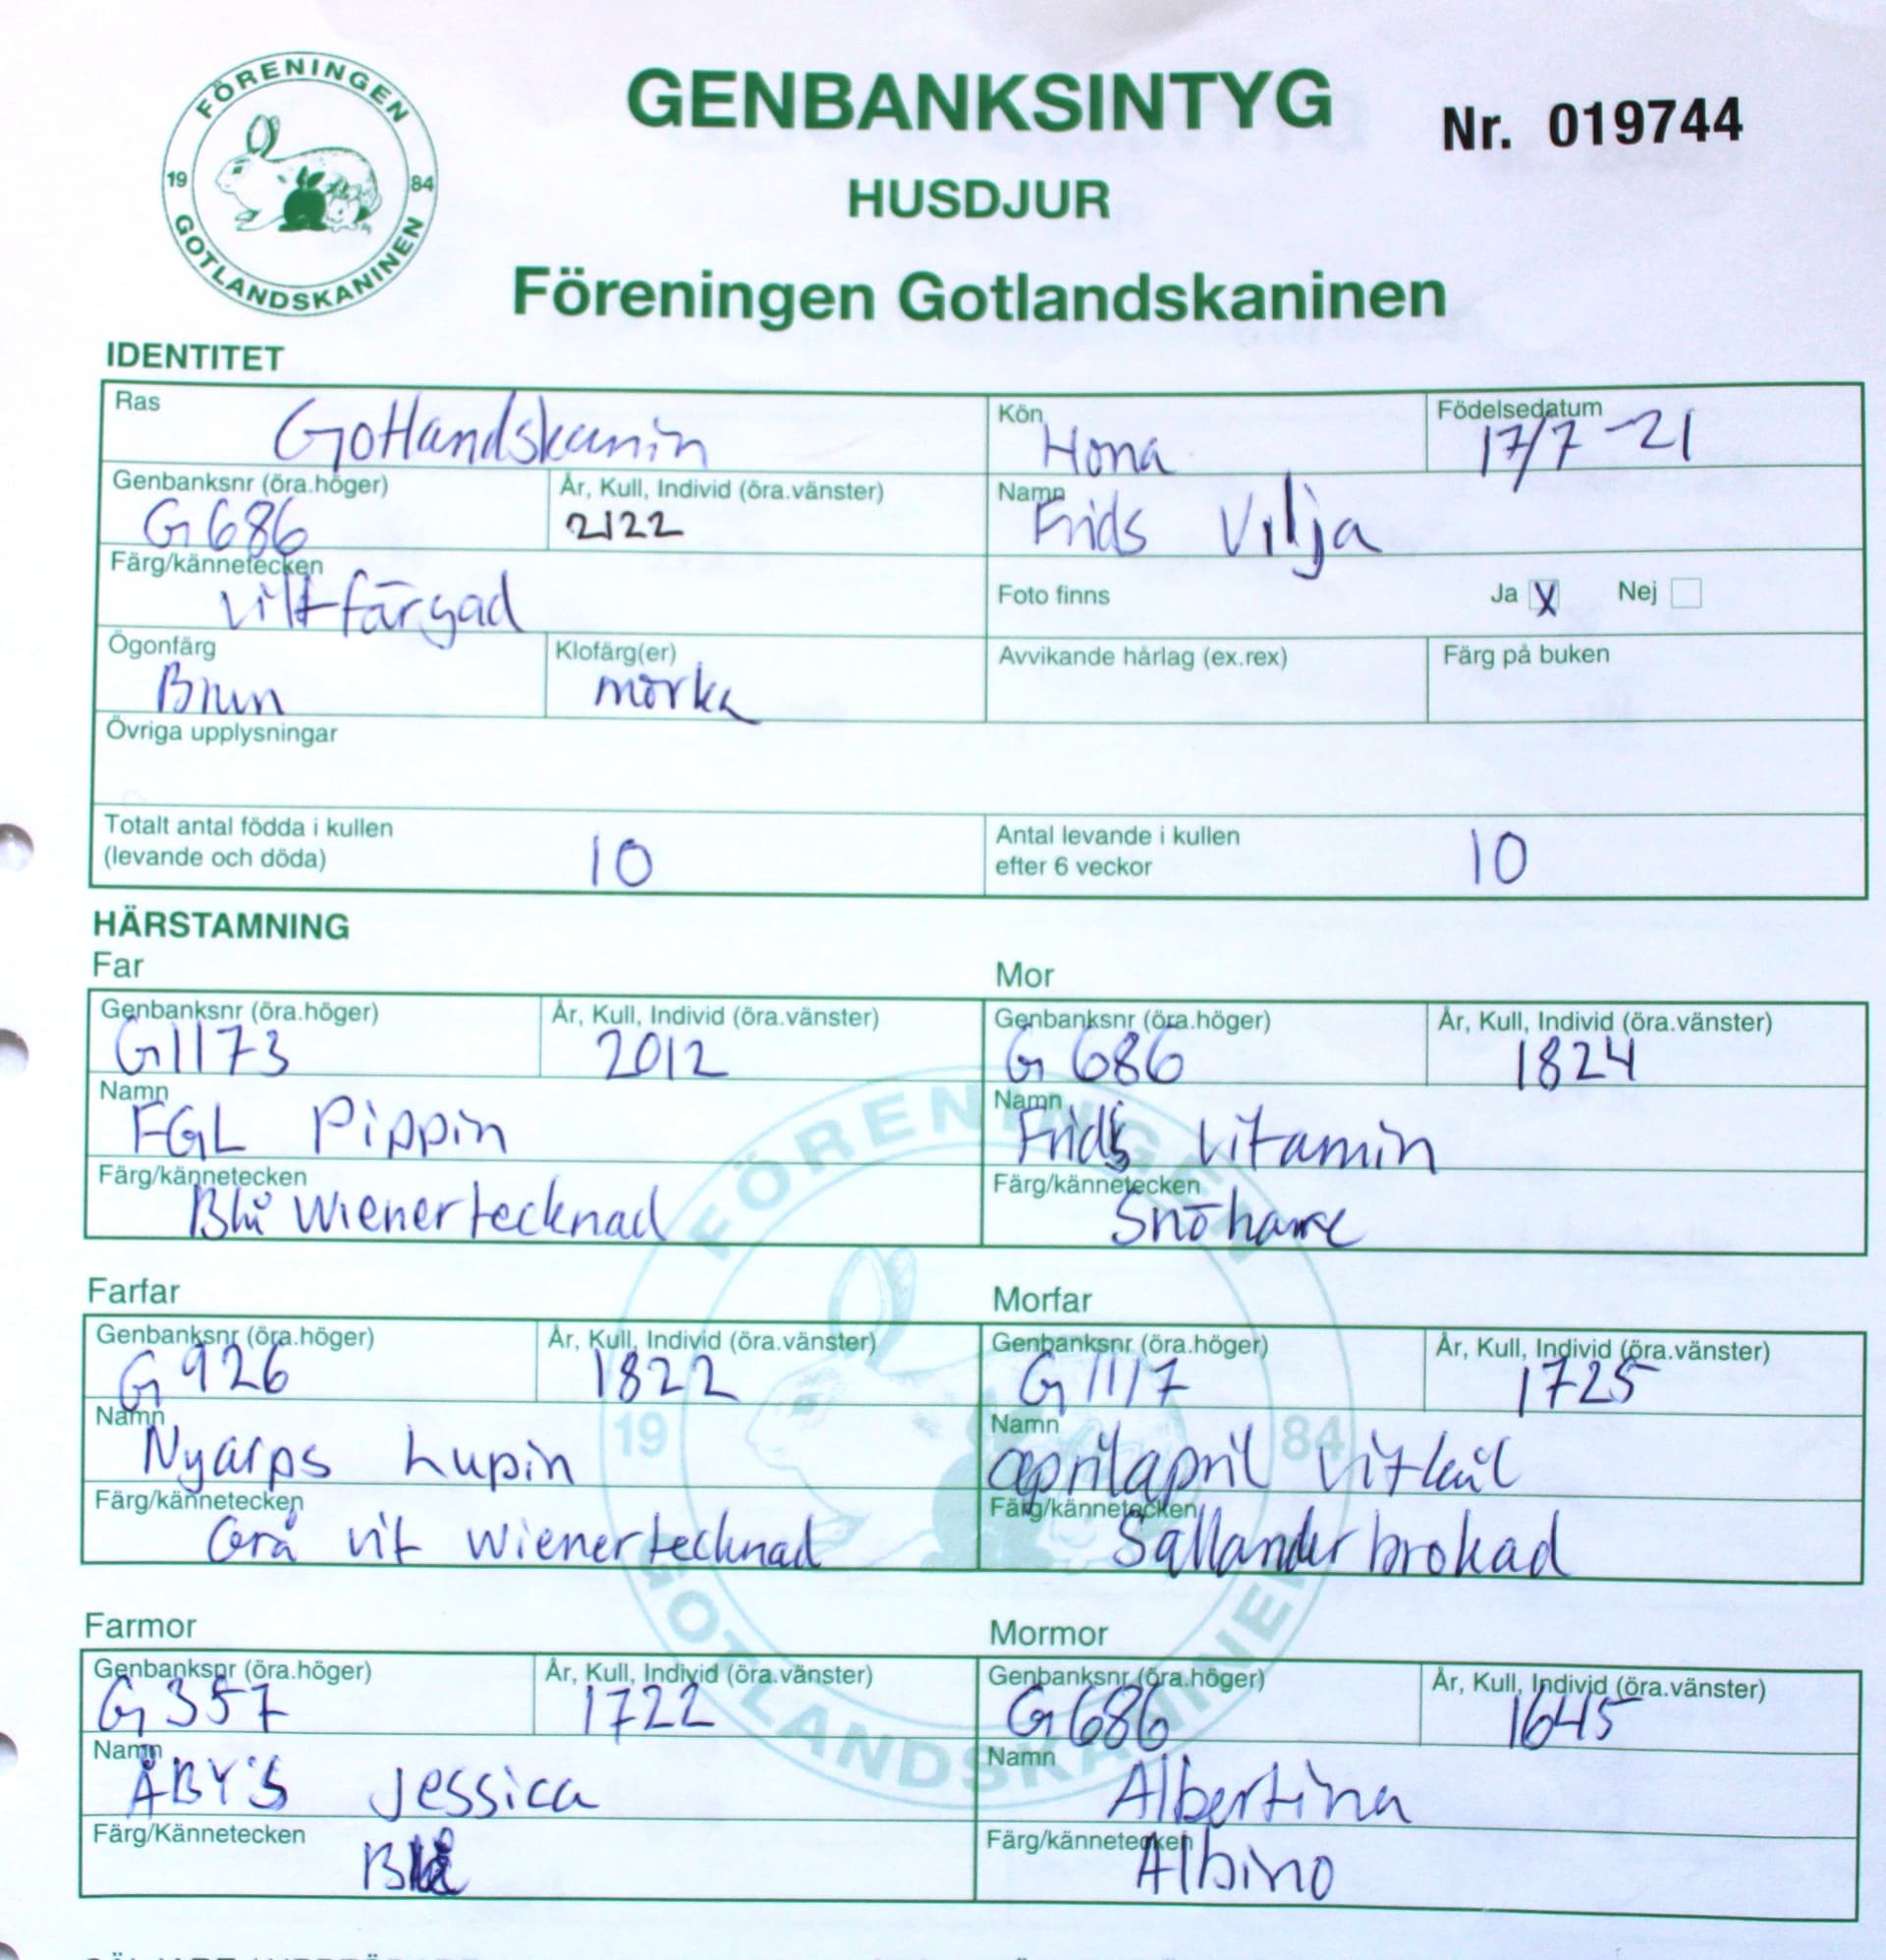 FÖRENINGEN
19 84
GOTLANDSKANINEN
GENBANKSINTYG
Nr. 019744
HUSDJUR
Föreningen Gotlandskaninen
IDENTITET
Ras Gotlandskanin
Kön Hona
Födelsedatum 17/7 -21
Genbanksnr (öra.höger) G686
År, Kull, Individ (öra.vänster) 2122
Namn Frids Vilja
Färg/kännetecken viltfärgad
Foto finns Ja X Nej
Ögonfärg Brun
Klofärg(er) mörka
Avvikande hårlag (ex.rex)
Färg på buken
Övriga upplysningar
Totalt antal födda i kullen
(levande och döda) 10
Antal levande i kullen
efter 6 veckor 10
HÄRSTAMNING
Far
Genbanksnr (öra.höger) G1173
År, Kull, Individ (öra.vänster) 2012
Namn FGL Pippin
Färg/kännetecken Blå wienertecknad
Mor
Genbanksnr (öra.höger) G 686
År, Kull, Individ (öra.vänster) 1824
Namn Frids vitamin
Färg/kännetecken Snöharre
Farfar
Genbanksnr (öra.höger) G 926
År, Kull, Individ (öra.vänster) 1822
Namn Nyarps Lupin
Färg/kännetecken Grå vit wienertecknad
Morfar
Genbanksnr (öra.höger) G1117
År, Kull, Individ (öra.vänster) 1725
Namn aprilapril vitkål
Färg/kännetecken Sallanderbrokad
Farmor
Genbanksnr (öra.höger) G357
År, Kull, Individ (öra.vänster) 1722
Namn ÅBY'S Jessica
Färg/Kännetecken Blå
Mormor
Genbanksnr (öra.höger) G686
År, Kull, Individ (öra.vänster) 1645
Namn Albertina
Färg/kännetecken Albino
FÖRENINGEN
19 84
GOTLANDSKANINEN